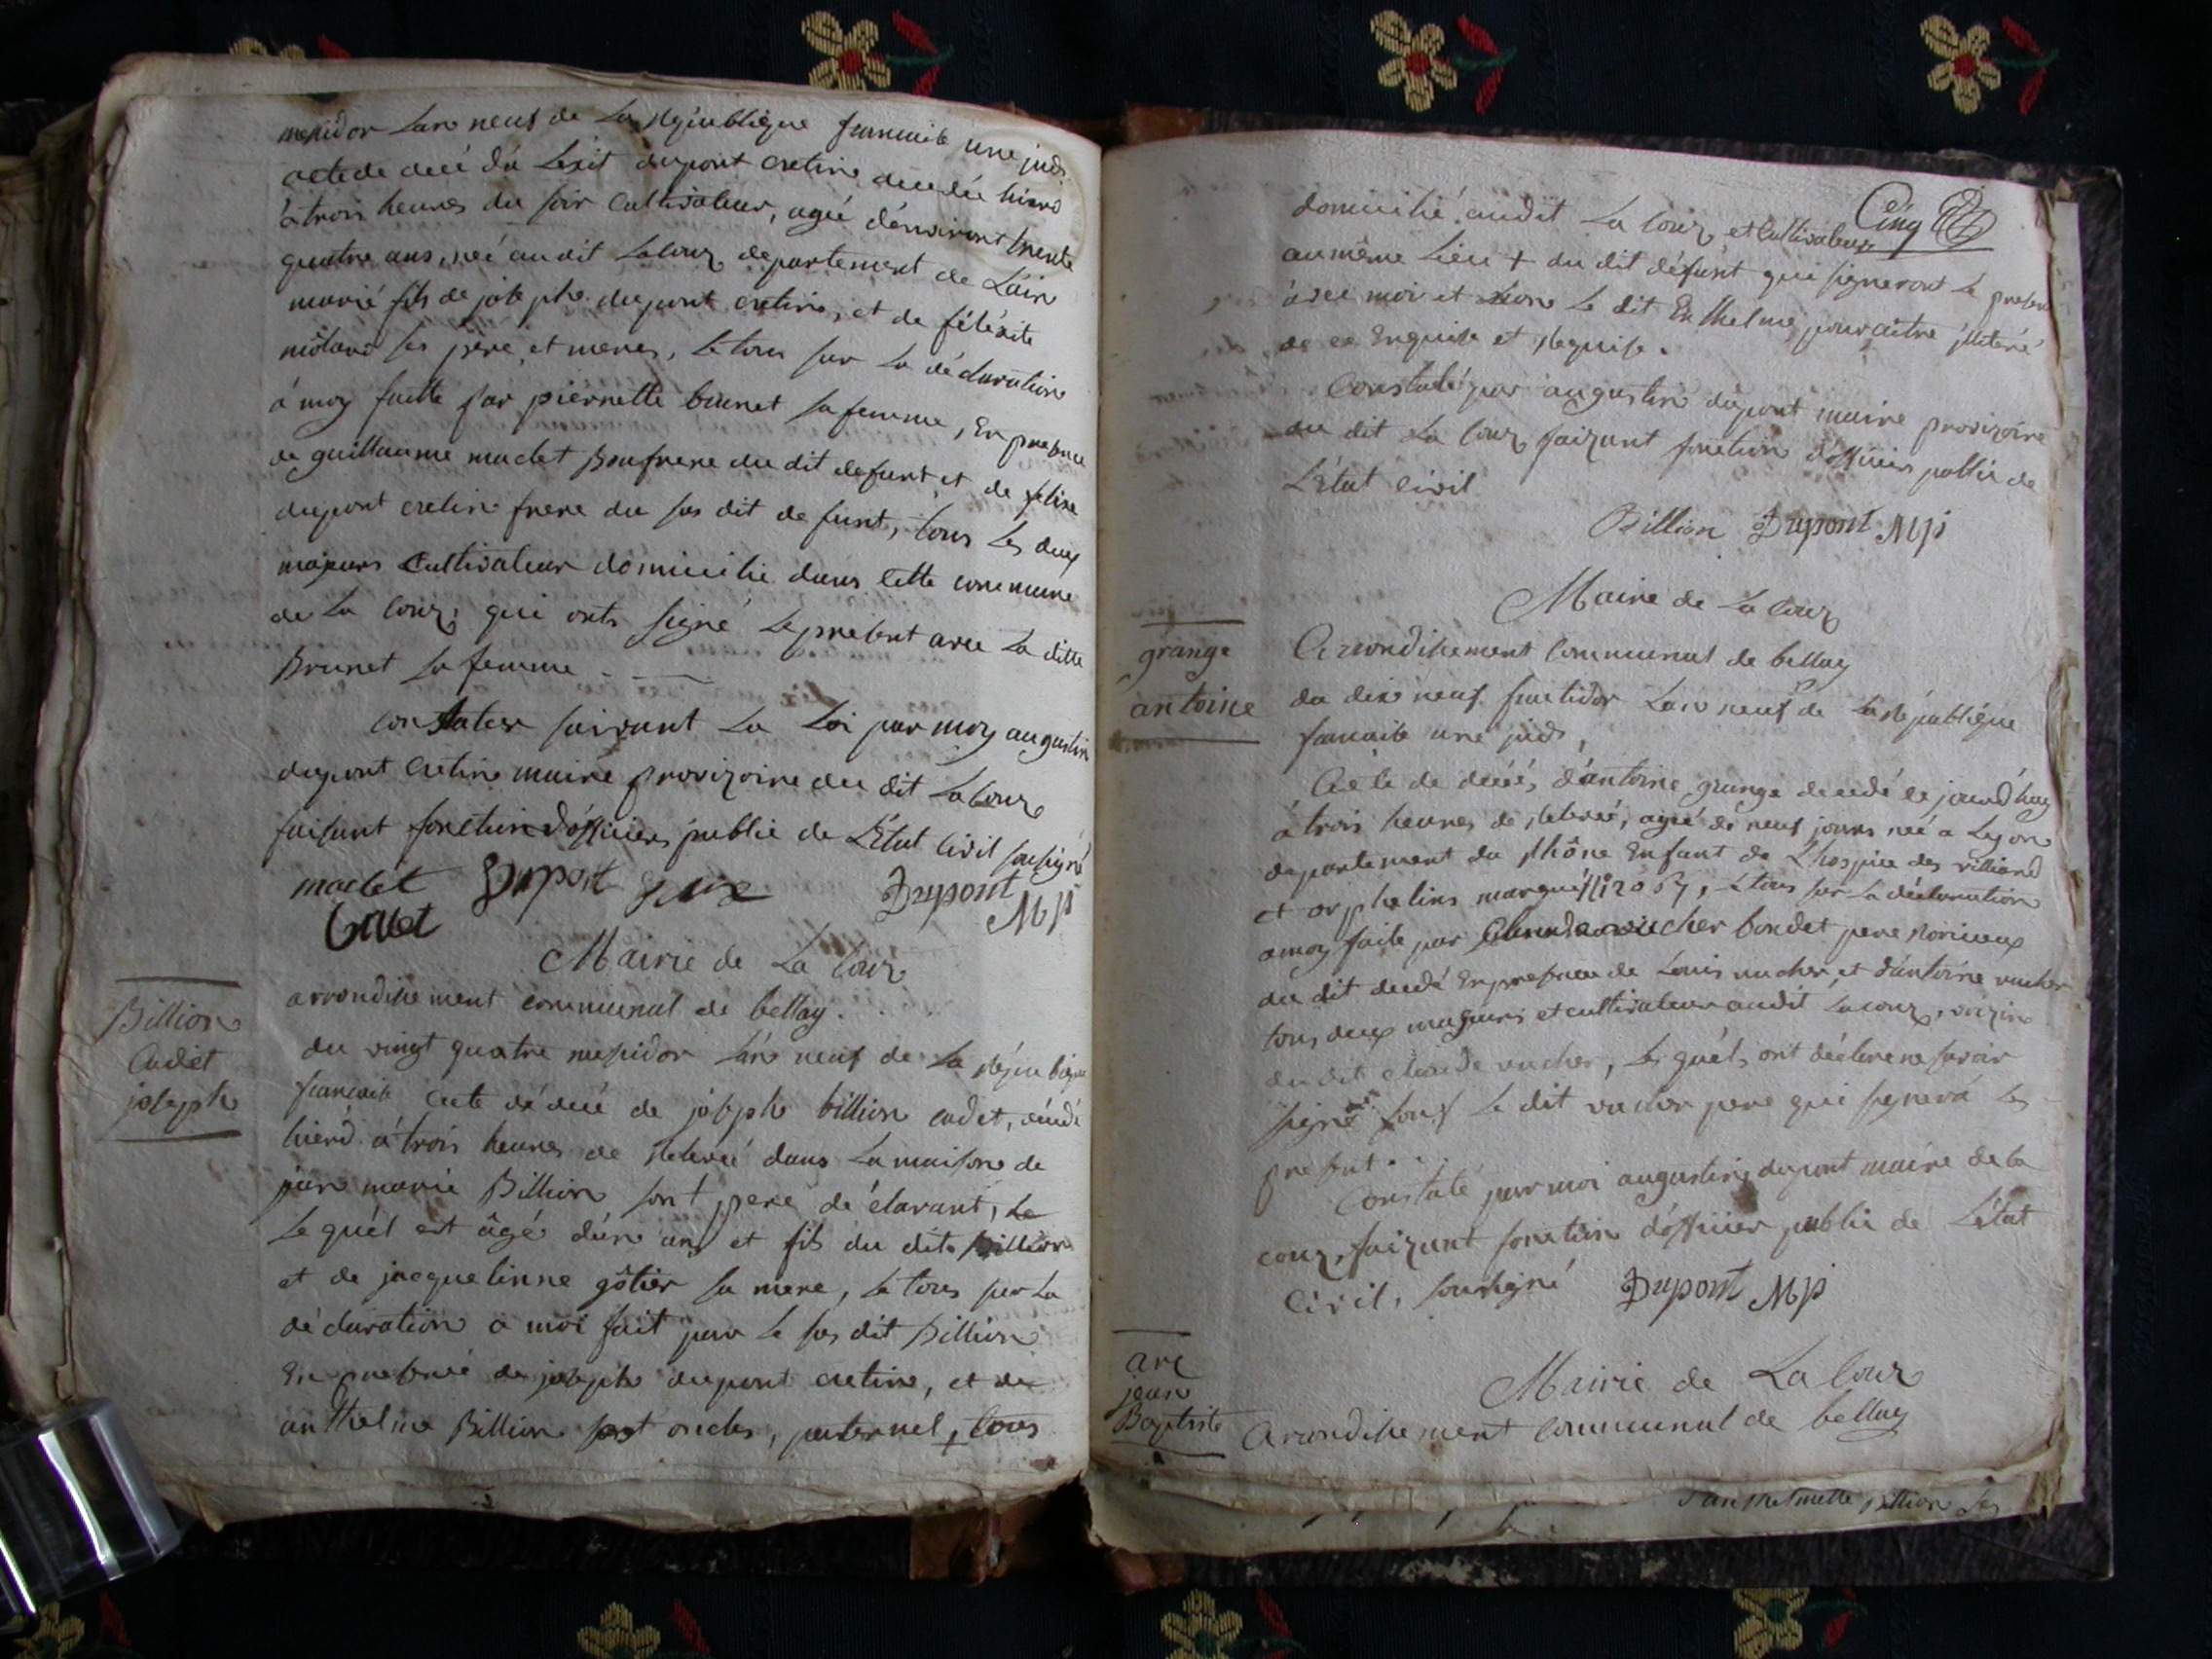 messidor Lan neuf de La Republique francaise une ind
acte de décé du dupont cretin décédée hierd
à trois heures du soir Cultivateur, agée d'environt trente
quatre ans, née au dit Lacouz departement de Lain
marié fils de joseph dupont cretin, et de féléxite
môlard ses père et meres, le tous sur La déclaration
à moy faitte par pierrette brunet sa femme, En presence
de guillaume maclet Boufrere du dit defunt et de felix
dupont cretin frere du sus dit defunt, tous Les deux
majeurs Cultivateur domicilié dans Cette commune
de La Couz, qui onts signé Le present avec La ditte
Brunet sa femme
Constater suivant La Loi par moy augustin
dupont Cretin maire provizoire du dit La Couz
faisant fonction d'officier public de L'Etat Civil sousigné
maclet Dupont Dupont
MP
Mairie de La Couz
arrondissement communal de bellay.
Billion
Cadet
joseph
du vingt quatre messidor Lan neuf de La républiqu
francaise acte dé décé de joseph billion cadet, décédé
hierd à trois heures de relevée dans La maison de
jean marie Billion sont pere déclarant, Le
Le quél est âgé d'un an et fils du dit Billion
et de jacquelinne gôtier sa mere, le tous sur La
déclaration à moi fait par Le sus dit Billion
En presence de joseph dupont cretin, et de
anthelme Billion sont oncles, paternel, + tous
Cinq
domicilié audit La Couz, et Cultivateur
au même Lieu + du dit défunt qui signeront Le presen
avec moi et non Le dit Enthelme pour aître illiteré
de ce Enquise et Requise.
Constaté par augustin dupont maire provizoire
du dit La Couz faizant fonction d'officier public de
L'Etat Civil
Billion Dupont MP
Maire de La Couz
grange
antoine
Arrondissement Communal de bellay
du dix neuf fructidor Lan neuf de La Republique
francaise une ind,
Acte de décés d'antoine grange décédé ce jourd'huy
à trois heures de relevée, agé de neuf jours né a Lyon
departement du Rhône Enfant de L'hospice des
et orphelins marqué, Le tous sur La déclaration
a moy faite par Claude vucher bondet pere noricieux
du dit décédé En presence de Louis vucher, et d'antoine vucher
tous deux majeurs et cultivateur audit Lacouz, voizin
du dit claude vucher, Les quels ont déclare ne savoir
signé sauf Le dit vucher pere qui signera Le
present
Constaté par moi augustin dupont maire de La
couz, faizant fonction d'officier public de L'état
Civil, sousigné Dupont MP
Mairie de La Couz
arc
jean
Baptiste
Arrondissement Communal de bellay
d'anthelmette Billion Ses